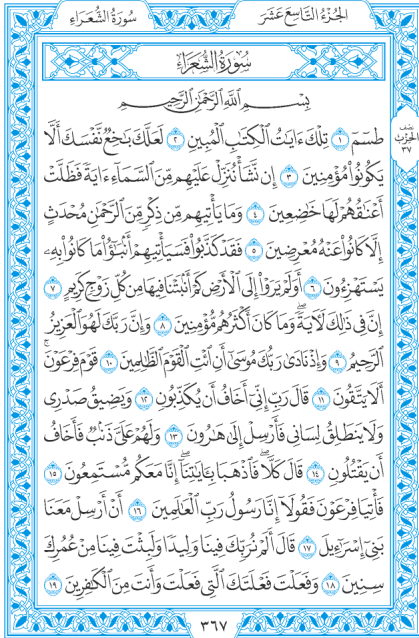 سُورَةُ الشُّعَرَاءِ
الجُزْءُ التَّاسِعَ عَشَرَ
سُورَةُ الشُّعَرَاءِ
بِسْمِ اللَّهِ الرَّحْمَٰنِ الرَّحِيمِ
طسٓمٓ ١ تِلْكَ ءَايَٰتُ ٱلْكِتَٰبِ ٱلْمُبِينِ ٢ لَعَلَّكَ بَٰخِعٌ نَّفْسَكَ أَلَّا
نصف
الحزب
٣٧
يَكُونُوا۟ مُؤْمِنِينَ ٣ إِن نَّشَأْ نُنَزِّلْ عَلَيْهِم مِّنَ ٱلسَّمَآءِ ءَايَةً فَظَلَّتْ
أَعْنَٰقُهُمْ لَهَا خَٰضِعِينَ ٤ وَمَا يَأْتِيهِم مِّن ذِكْرٍ مِّنَ ٱلرَّحْمَٰنِ مُحْدَثٍ
إِلَّا كَانُوا۟ عَنْهُ مُعْرِضِينَ ٥ فَقَدْ كَذَّبُوا۟ فَسَيَأْتِيهِمْ أَنۢبَٰٓؤُا۟ مَا كَانُوا۟ بِهِۦ
يَسْتَهْزِءُونَ ٦ أَوَلَمْ يَرَوْا۟ إِلَى ٱلْأَرْضِ كَمْ أَنۢبَتْنَا فِيهَا مِن كُلِّ زَوْجٍ كَرِيمٍ ٧
إِنَّ فِى ذَٰلِكَ لَءَايَةً ۖ وَمَا كَانَ أَكْثَرُهُم مُّؤْمِنِينَ ٨ وَإِنَّ رَبَّكَ لَهُوَ ٱلْعَزِيزُ
ٱلرَّحِيمُ ٩ وَإِذْ نَادَىٰ رَبُّكَ مُوسَىٰٓ أَنِ ٱئْتِ ٱلْقَوْمَ ٱلظَّٰلِمِينَ ١٠ قَوْمَ فِرْعَوْنَ ۚ
أَلَا يَتَّقُونَ ١١ قَالَ رَبِّ إِنِّىٓ أَخَافُ أَن يُكَذِّبُونِ ١٢ وَيَضِيقُ صَدْرِى
وَلَا يَنطَلِقُ لِسَانِى فَأَرْسِلْ إِلَىٰ هَٰرُونَ ١٣ وَلَهُمْ عَلَىَّ ذَنۢبٌ فَأَخَافُ
أَن يَقْتُلُونِ ١٤ قَالَ كَلَّا ۖ فَٱذْهَبَا بِـَٔايَٰتِنَآ ۖ إِنَّا مَعَكُم مُّسْتَمِعُونَ ١٥
فَأْتِيَا فِرْعَوْنَ فَقُولَآ إِنَّا رَسُولُ رَبِّ ٱلْعَٰلَمِينَ ١٦ أَنْ أَرْسِلْ مَعَنَا
بَنِىٓ إِسْرَٰٓءِيلَ ١٧ قَالَ أَلَمْ نُرَبِّكَ فِينَا وَلِيدًا وَلَبِثْتَ فِينَا مِنْ عُمُرِكَ
سِنِينَ ١٨ وَفَعَلْتَ فَعْلَتَكَ ٱلَّتِى فَعَلْتَ وَأَنتَ مِنَ ٱلْكَٰفِرِينَ ١٩
٣٦٧